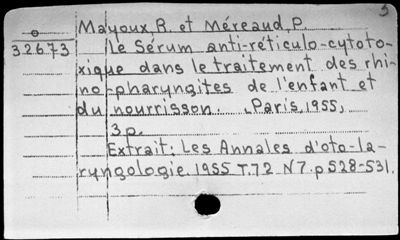 5
Mayoux,R. et Méreaud,P.
32673
Le Sérum anti-réticulo-cytoto-
xique dans le traitement des rhi-
no-pharyngites de l'enfant et
du nourrisson. Paris, 1955,
3p.
Extrait: Les Annales d'oto-la-
ryngologie. 1955 T.72 N7. p 528-531.